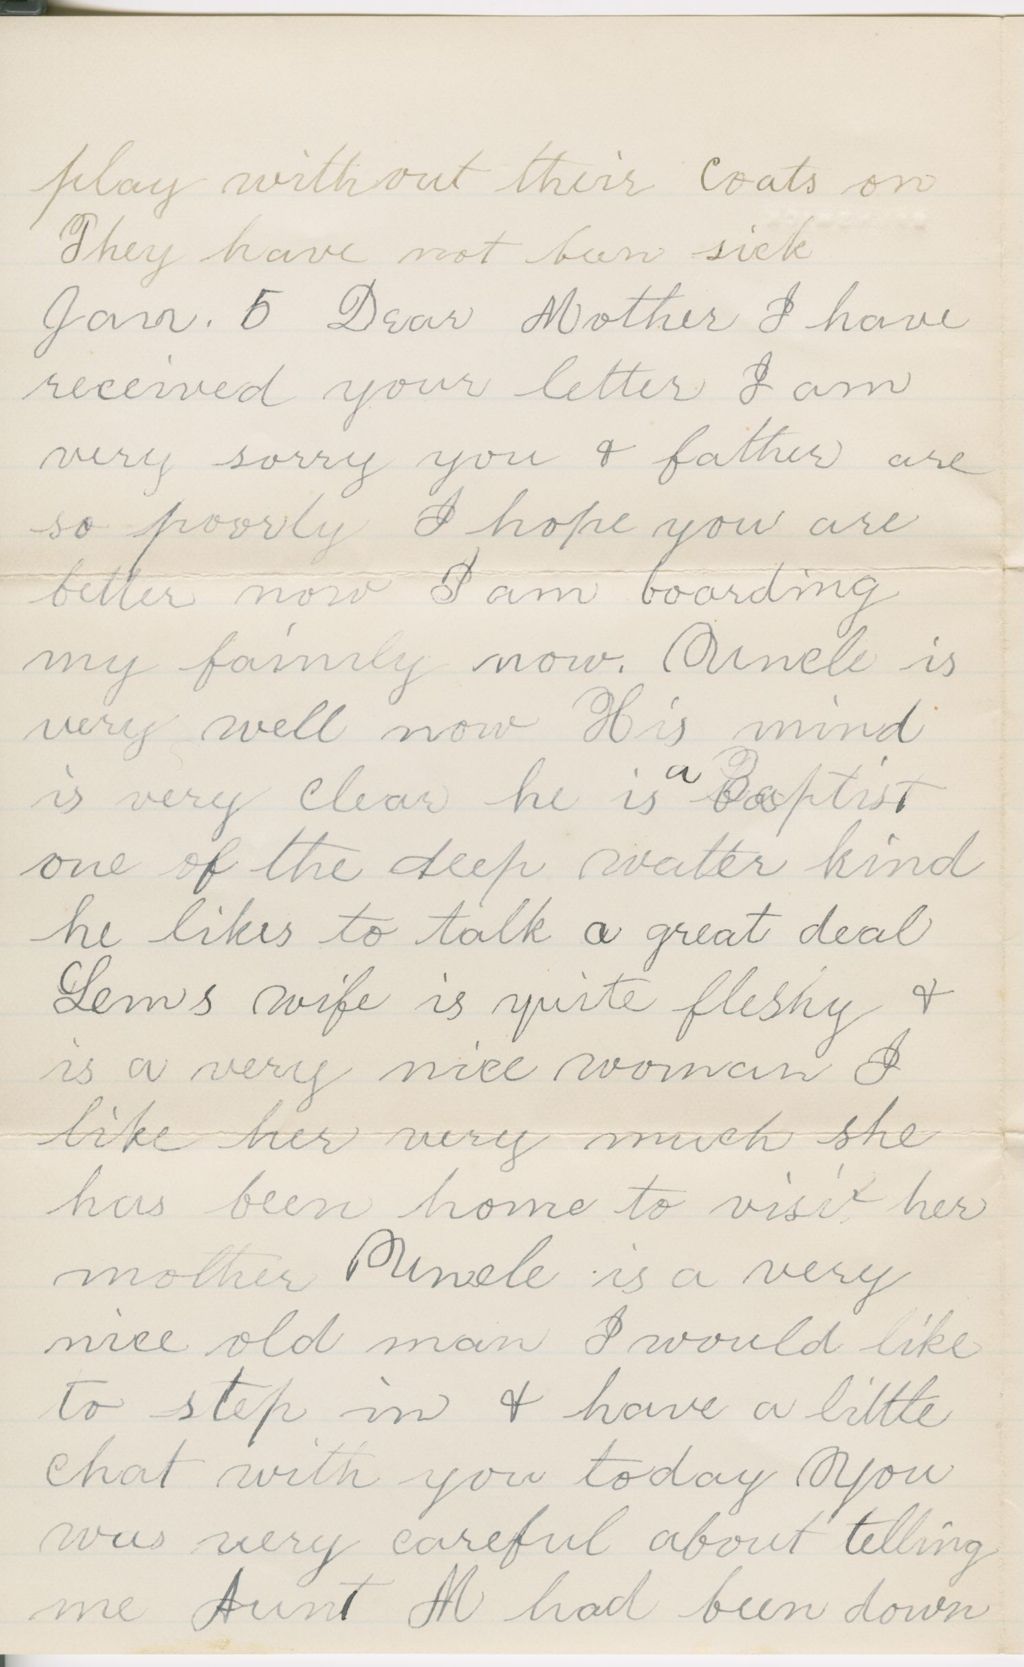 play without their coats on
They have not been sick
Jan. 5 Dear Mother I have
received your letter I am
very sorry you & father are
so poorly I hope you are
better now I am boarding
my faimly now. Uncle is
very well now His mind
is very clear he is a Baptist
one of the deep water kind
he likes to talk a great deal
Lems wife is quite fleshy &
is a very nice woman I
like her very much she
has been home to visit her
mother Uncle is a very
nice old man I would like
to step in & have a little
chat with you today You
was very careful about telling
me Aunt M had been down